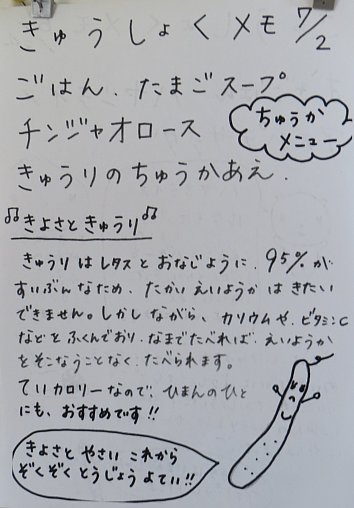 きゅうしょくメモ 7/2
ごはん、たまごスープ
チンジャオロース
きゅうりのちゅうかあえ.
ちゅうか
メニュー
きよさときゅうり
きゅうりはレタスとおなじように、95%が
すいぶんなため、たかいえいようかはきたい
できません。しかしながら、カリウムや、ビタミンC
などをふくんでおり、なまでたべれば、えいようか
をそこなうことなく、たべられます。
ていカロリーなので、ひまんのひと
にも、おすすめです!!
きよさとやさいこれから
ぞくぞくとうじょうよてい!!